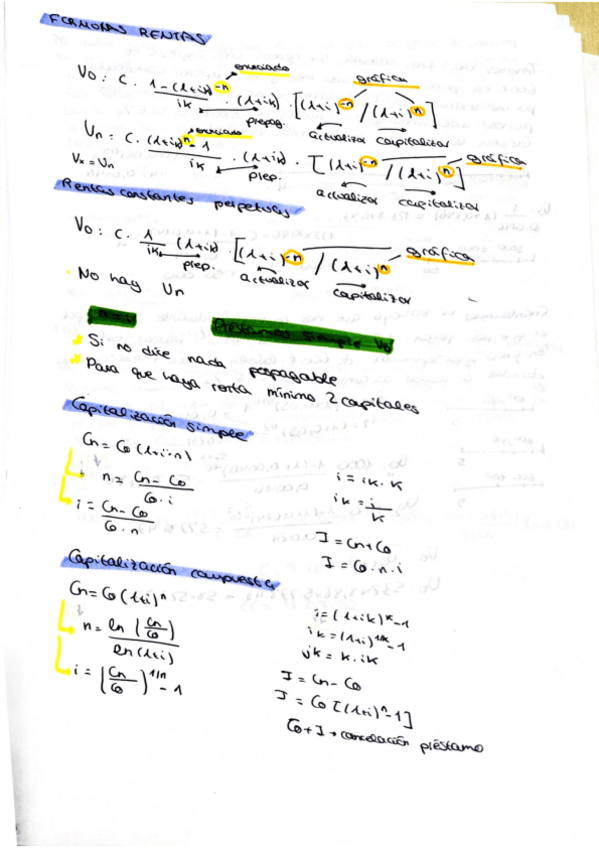 FORMULAS RENTAS
enunciado
gráfica
V0: C. 1-(1+ik)^-n / ik . (1+ik) . [(1+i)^-n / (1+i)^n]
prepag. actualizar capitalizar
enunciado
Vn: C. (1+ik)^n - 1 / ik . (1+ik) . [(1+i)^-n / (1+i)^n] gráfica
prep. actualizar capitalizar
Rentas constantes perpetuas
V0: C. 1 / ik (1+ik) . [(1+i)^-n / (1+i)^n] gráfica
prep. actualizar capitalizar
No hay Vn
Préstamos simple V0
Si no dice nada prepagable
Para que haya renta mínimo 2 capitales
Capitalización simple
Cn = C0 (1+i.n)
n = Cn - C0 / C0.i
i = Cn - C0 / C0.n
i = ik.k
ik = i / k
I = Cn + C0
I = C0.n.i
Capitalización compuesta
Cn = C0 (1+i)^n
n = ln (Cn / C0) / ln (1+i)
i = (Cn / C0)^1/n - 1
i = (1+ik)^k - 1
ik = (1+i)^1/k - 1
jk = k.ik
I = Cn - C0
I = C0 [(1+i)^n - 1]
C0 + I → cancelación préstamo